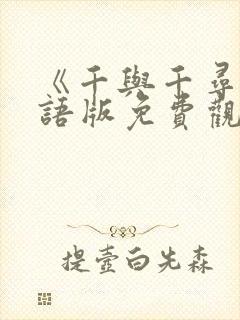 《千與千尋
語版免費觀
提壺白先森